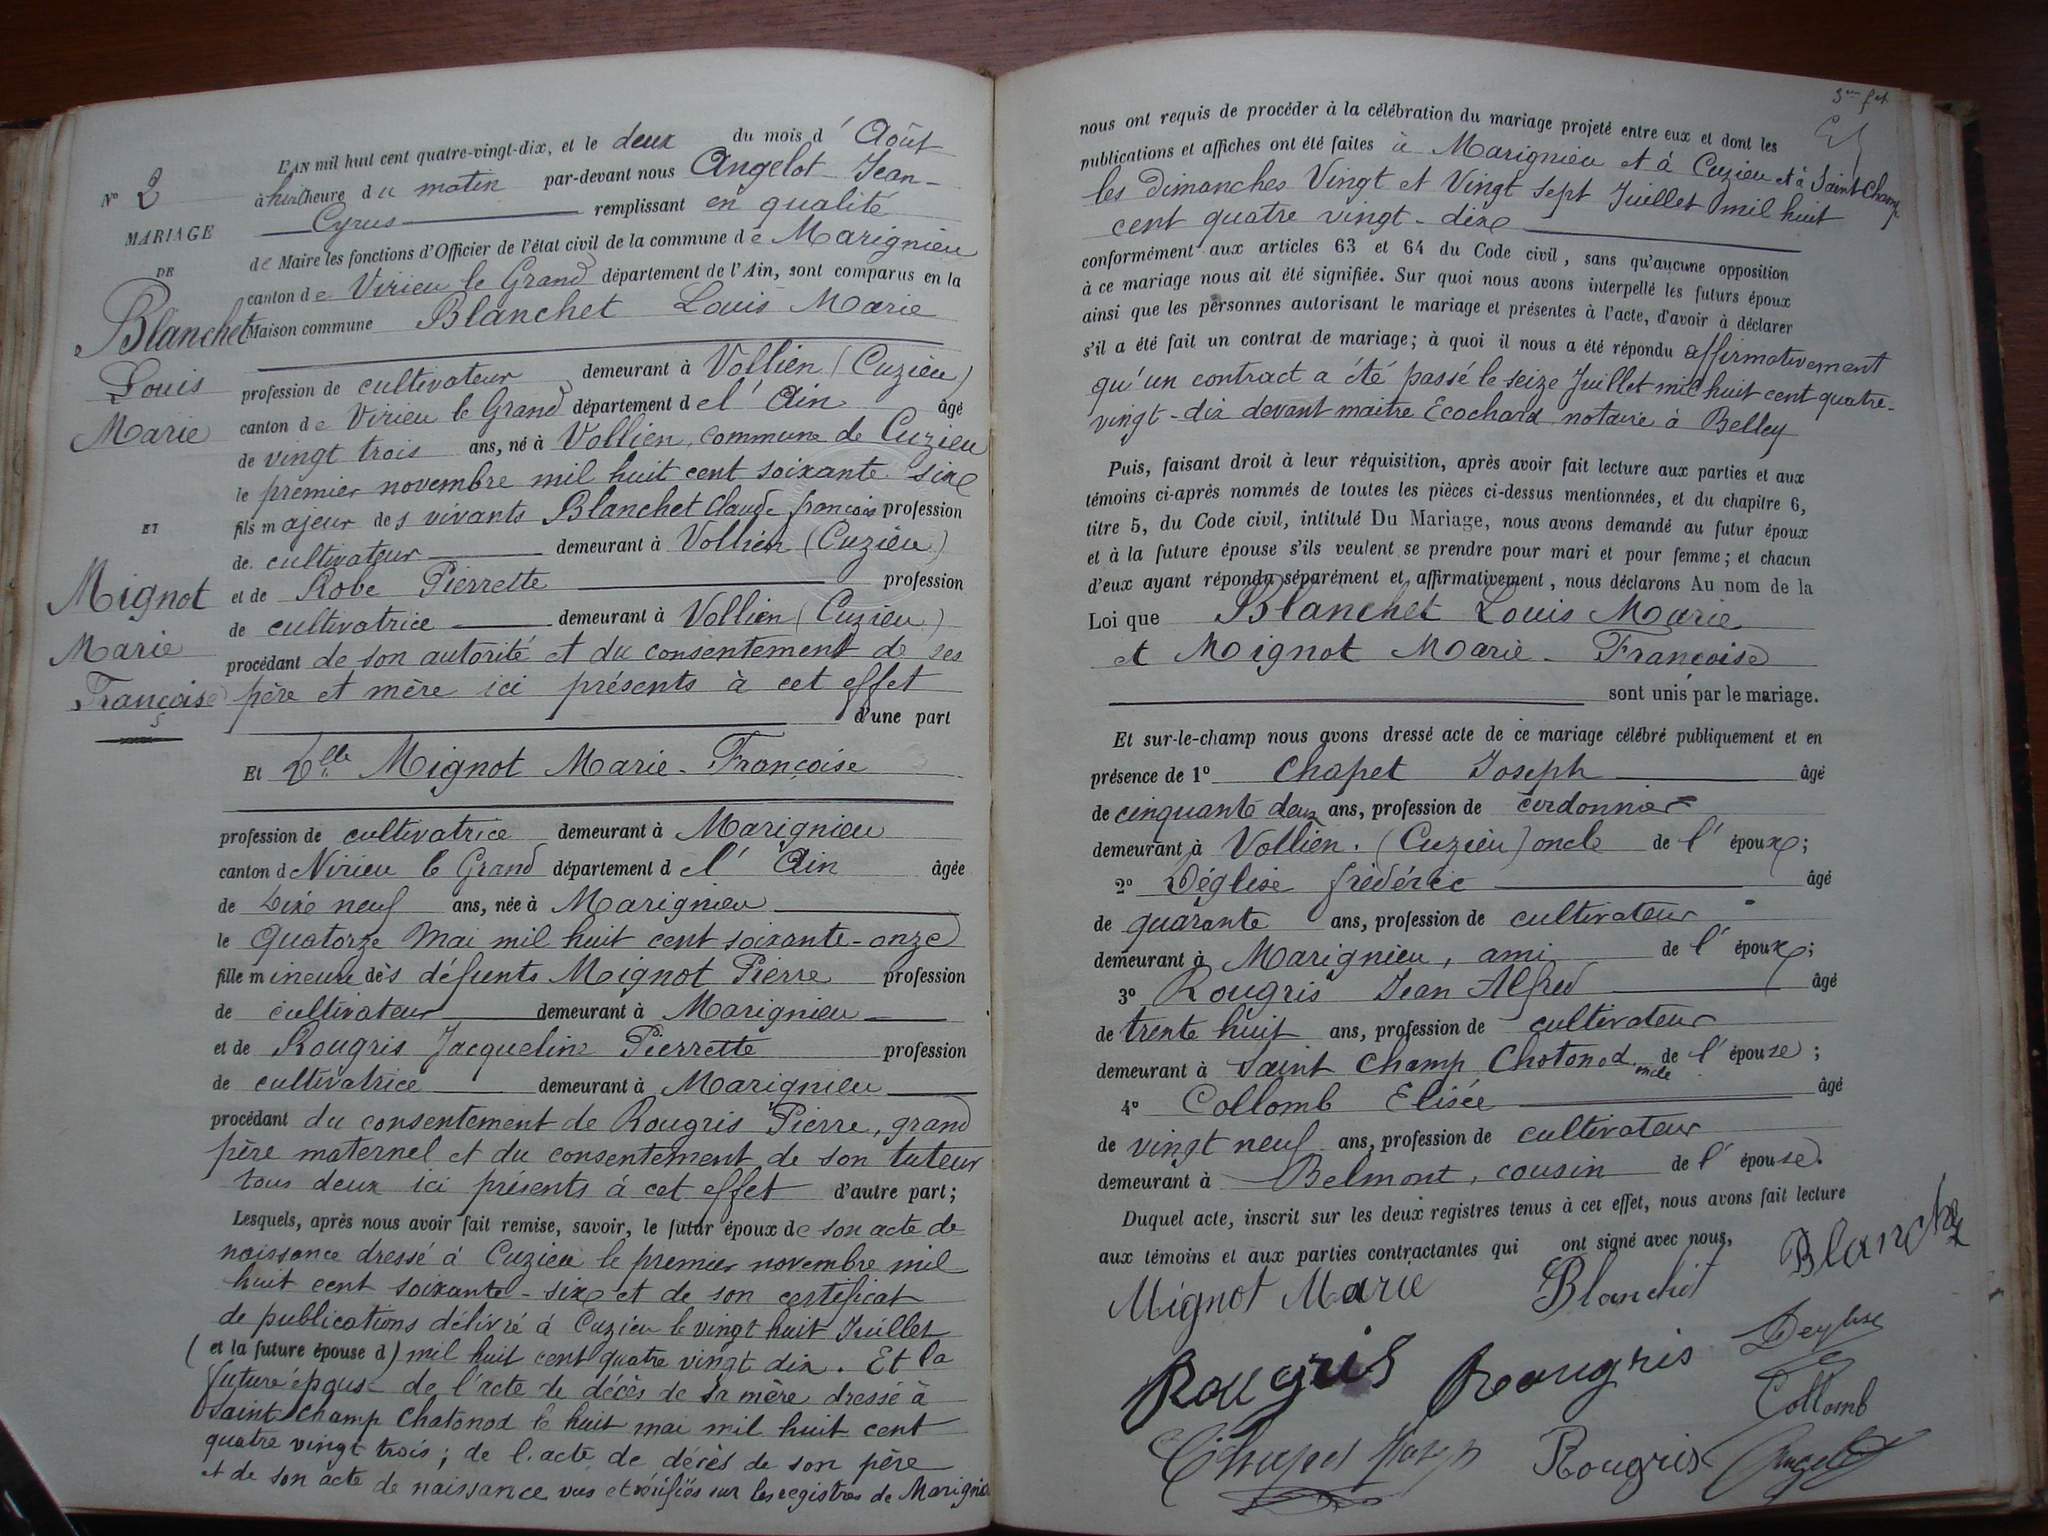 EAN mil huit cent quatre-vingt-dix, et le deux du mois d' Août
N° 2
à huit heure du matin par-devant nous Angelot Jean-
Cyrus remplissant en qualité
MARIAGE
de Maire les fonctions d'Officier de l'état civil de la commune de Marignieu
DE
canton de Virieu le Grand département de l'Ain, sont comparus en la
Blanchet
Maison commune Blanchet Louis Marie
Louis
profession de cultivateur demeurant à Vollien (Cuzieu)
Marie
canton de Virieu le Grand département de l' Ain âgé
de vingt trois ans, né à Vollien, commune de Cuzieu
le premier novembre mil huit cent soixante six
ET
fils majeur des vivants Blanchet Claude françois profession
de cultivateur demeurant à Vollien (Cuzieu)
Mignot
et de Robe Pierrette profession
de cultivatrice demeurant à Vollien (Cuzieu)
Marie
procédant de son autorité et du consentement de ses
Françoise
père et mère ici présents à cet effet
d'une part
Et Dlle Mignot Marie-Françoise
profession de cultivatrice demeurant à Marignieu
canton d Virieu le Grand département de l' Ain âgée
de Dixe neuf ans, née à Marignieu
le Quatorze Mai mil huit cent soixante-onze
fille mineure dès défunts Mignot Pierre profession
de cultivateur demeurant à Marignieu
et de Rougris Jacqueline Pierrette profession
de cultivatrice demeurant à Marignieu
procédant du consentement de Rougris Pierre, grand
père maternel et du consentement de son tuteur
tous deux ici présents à cet effet d'autre part;
Lesquels, après nous avoir fait remise, savoir, le futur époux de son acte de
naissance dressé à Cuzieu le premier novembre mil
huit cent soixante-six et de son certificat
de publications délivré à Cuzieu le vingt huit Juillet
(et la future épouse d) mil huit cent quatre vingt dix. Et la
future épouse de l'acte de décès de sa mère dressé à
Saint Champ Chatonod le huit mai mil huit cent
quatre vingt trois; de l'acte de décès de son père
et de son acte de naissance vus et vérifiés sur les registres de Marignieu
3em fet
nous ont requis de procéder à la célébration du mariage projeté entre eux et dont les
publications et affiches ont été faites à Marignieu et à Cuzieu et à Saint-Champ
les Dimanches Vingt et Vingt sept Juillet mil huit
cent quatre vingt-dix
conformément aux articles 63 et 64 du Code civil, sans qu'aucune opposition
à ce mariage nous ait été signifiée. Sur quoi nous avons interpellé les futurs époux
ainsi que les personnes autorisant le mariage et présentes à l'acte, d'avoir à déclarer
s'il a été fait un contrat de mariage; à quoi il nous a été répondu affirmativement
qu'un contract a été passé le seize Juillet mil huit cent quatre-
vingt-dix devant maitre Ecochard notaire à Belley
Puis, faisant droit à leur réquisition, après avoir fait lecture aux parties et aux
témoins ci-après nommés de toutes les pièces ci-dessus mentionnées, et du chapitre 6,
titre 5, du Code civil, intitulé Du Mariage, nous avons demandé au futur époux
et à la future épouse s'ils veulent se prendre pour mari et pour femme; et chacun
d'eux ayant répondu séparément et affirmativement, nous déclarons Au nom de la
Loi que Blanchet Louis Marie
et Mignot Marie-Françoise
sont unis par le mariage.
Et sur-le-champ nous avons dressé acte de ce mariage célébré publiquement et en
présence de 1° Chapet Joseph âgé
de cinquante deux ans, profession de cordonnier
demeurant à Vollien. (Cuzieu) oncle de l' époux;
2° Déglise frédéric âgé
de quarante ans, profession de cultivateur
demeurant à Marignieu, ami de l' époux;
3° Rougris Jean Alfred âgé
de trente huit ans, profession de cultivateur
demeurant à Saint Champ Chatonod oncle de l' épouse;
4° Collomb Elisée âgé
de vingt neuf ans, profession de cultivateur
demeurant à Belmont, cousin de l' épouse.
Duquel acte, inscrit sur les deux registres tenus à cet effet, nous avons fait lecture
aux témoins et aux parties contractantes qui ont signé avec nous,
Mignot Marie Blanchet Blanchet
Rougris Rougris
Collomb
Chapet Rougris Angelot